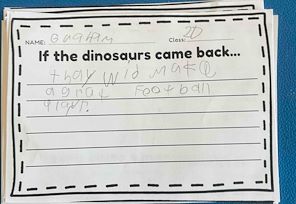 NAME: Graham Class: 2D
If the dinosaurs came back...
thay wid make
a grat football